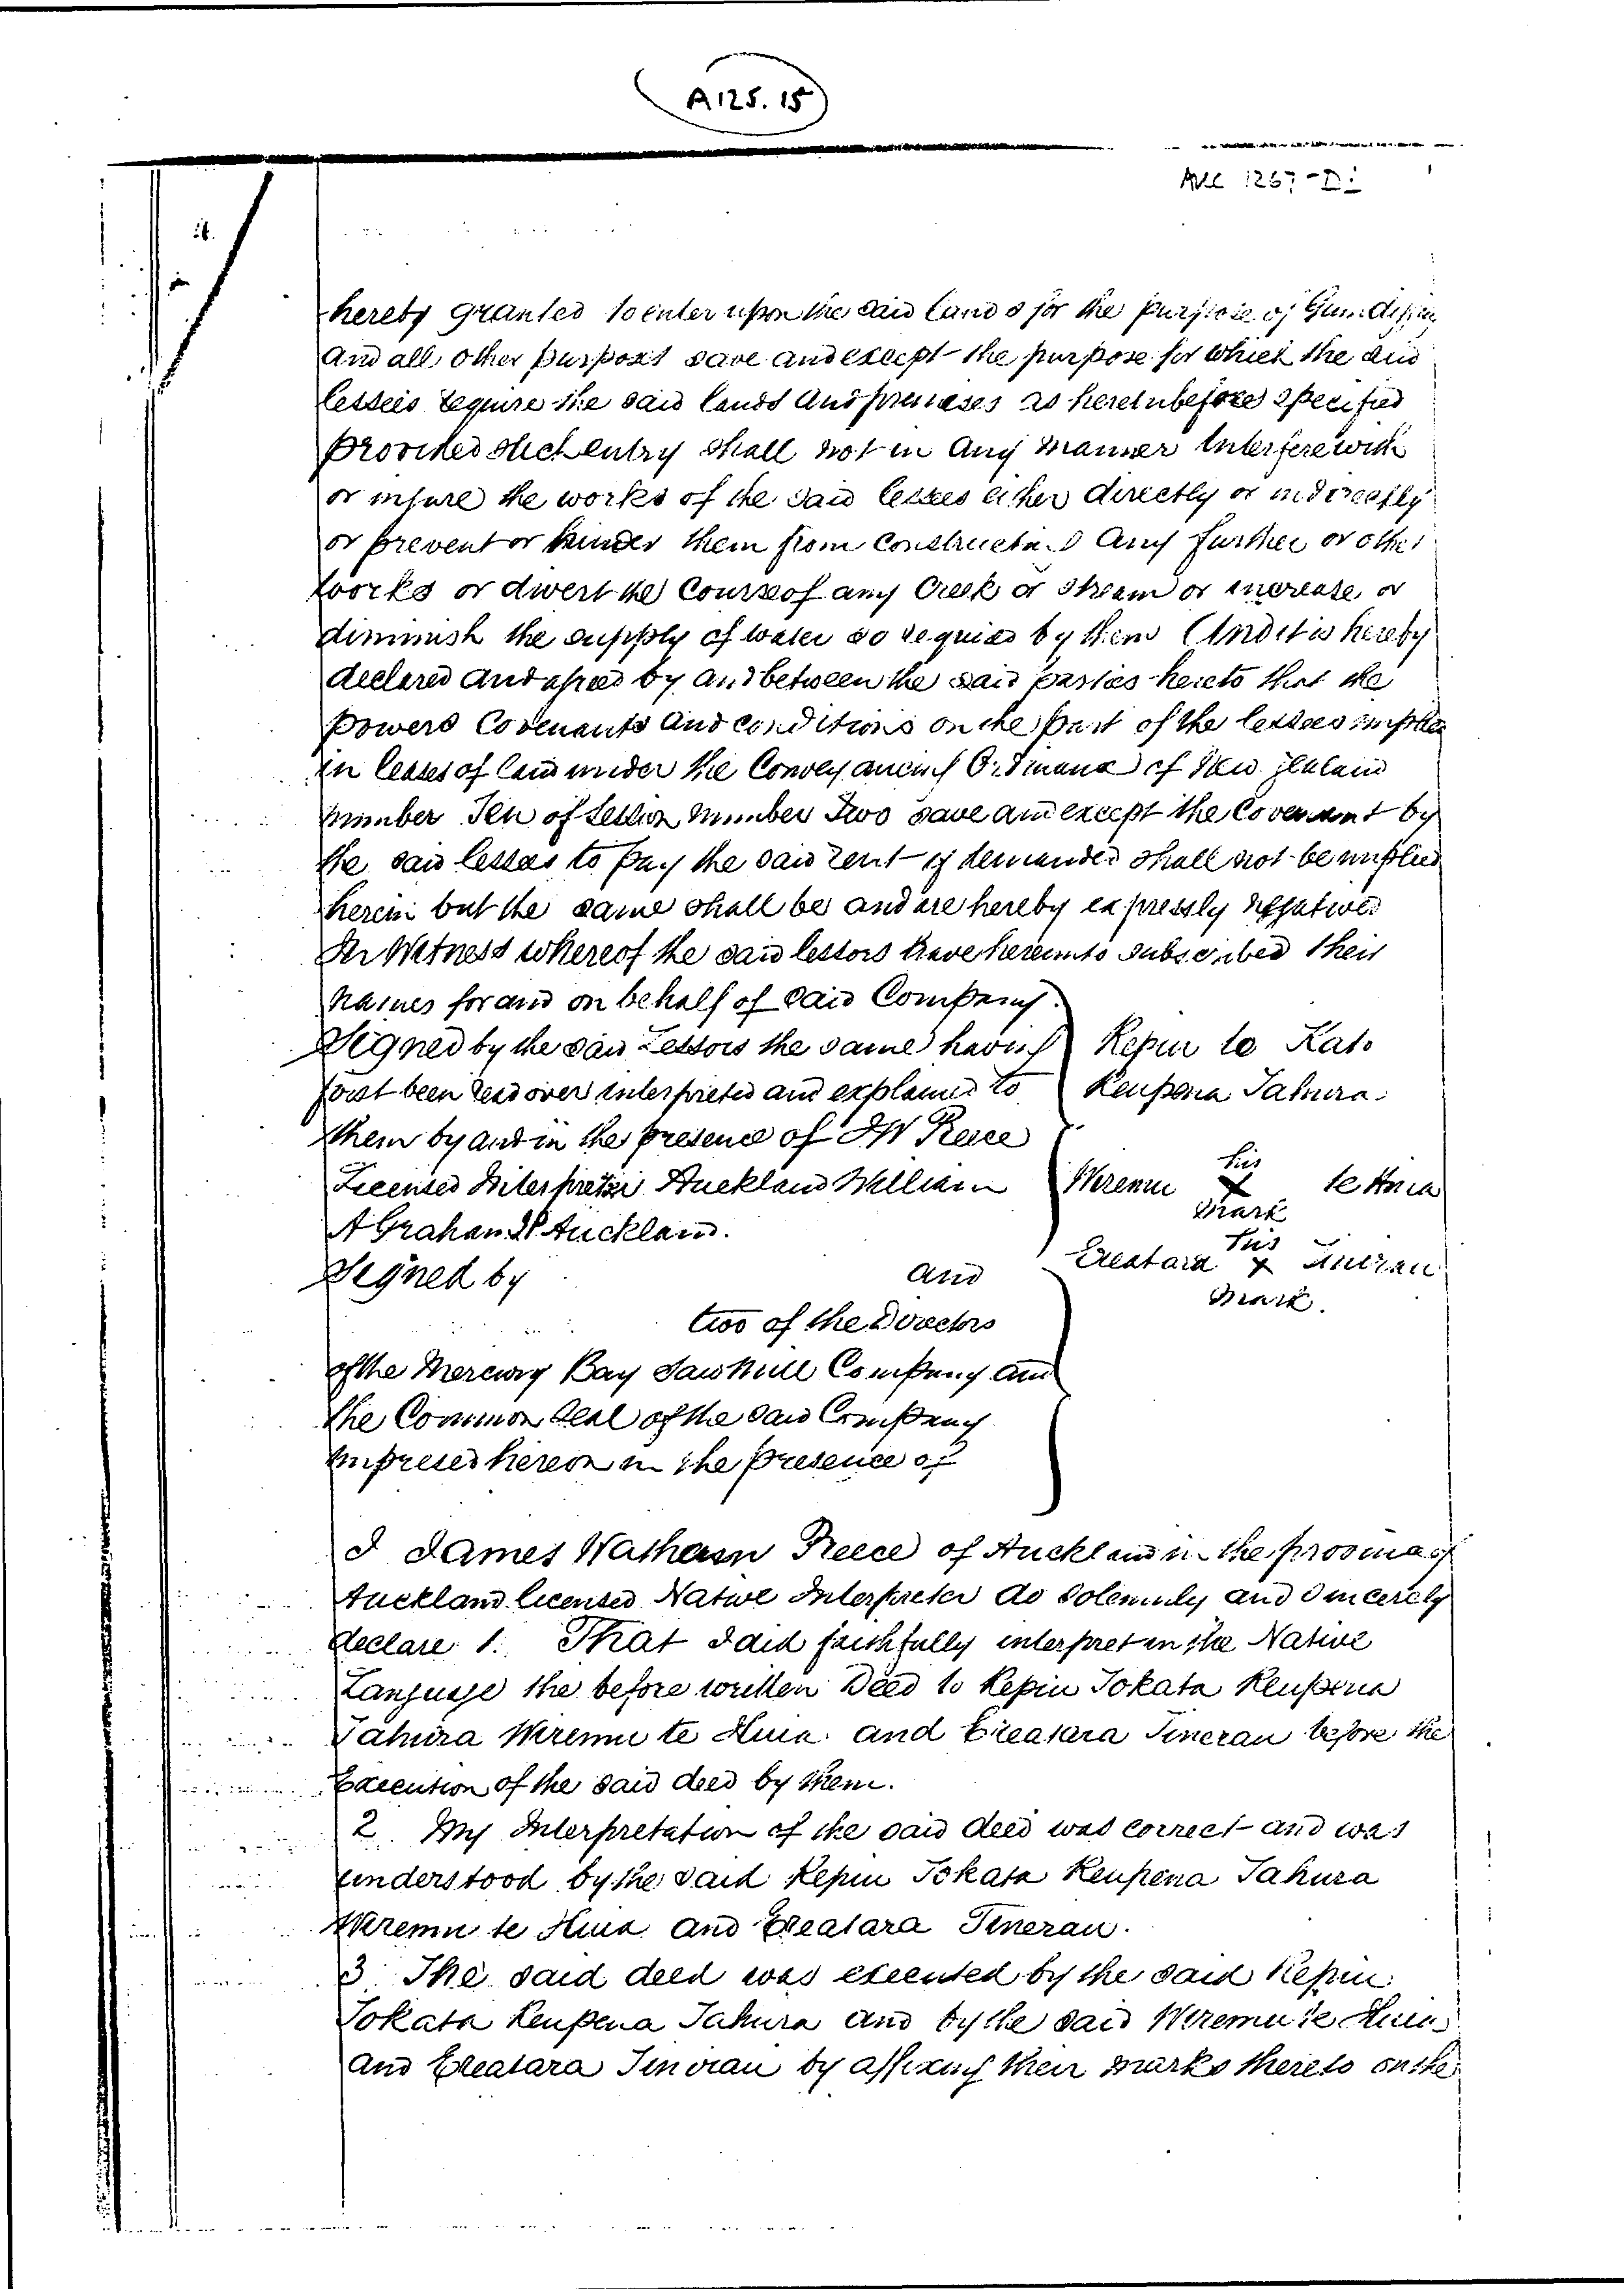 A125.15
hereby granted to enter upon the said lands for the purpose of Gumdigging
and all other purposes save and except the purpose for which the said
lessees require the said lands and premises as hereinbefore specified
provided such entry shall not in any manner Interfere with
or injure the works of the said lessees either directly or indirectly
or prevent or hinder them from constructing any further or other
works or divert the Course of any Creek or Stream or increase or
diminish the supply of water so required by them And it is hereby
declared and agreed by and between the said parties hereto that the
powers Covenants and conditions on the part of the lessees implied
in leases of land under the Conveyancing Ordinance of New Zealand
number Ten of Session number Two save and except the Covenant by
the said lessees to pay the said rent if demanded shall not be implied
herein but the same shall be and are hereby expressly negatived
In Witness whereof the said lessors have hereunto subscribed their
names for and on behalf of said Company.
Signed by the said Lessors the same having Repiu te Kato
first been read over interpreted and explained to Keupena Tahura
them by and in the presence of JW Preece
Licensed Interpreter Auckland William Wiremu his X mark te Huia
A Graham JP Auckland.
Ereatara his x mark Tinerau
Signed by and
two of the Directors
of the Mercury Bay Sawmill Company and
the Common Seal of the said Company
impressed hereon in the presence of
I James Wathan Preece of Auckland in the province of
Auckland licensed Native Interpreter do solemnly and sincerely
declare 1. That I did faithfully interpret in the Native
Language the before written Deed to Repiu Tokata Keupena
Tahura Wiremu te Huia and Ereatara Tinerau before the
Execution of the said deed by them.
2. My Interpretation of the said deed was correct and was
understood by the said Repiu Tokata Keupena Tahura
Wiremu te Huia and Ereatara Tinerau.
3. The said deed was executed by the said Repiu
Tokata Keupena Tahura and by the said Wiremu te Huia
and Ereatara Tinerau by affixing their marks thereto on the